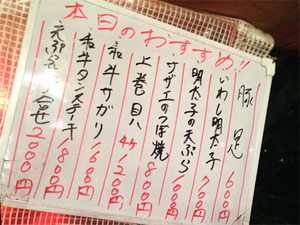 本日のおすすめ!!
豚足 600円
いわし明太子 700円
明太子の天ぷら 600円
サザエのつぼ焼 800円
上巻貝 4ケ 1200円
和牛サガリ 1600円
和牛タンステーキ 1800円
天ぷら盛合せ 2000円